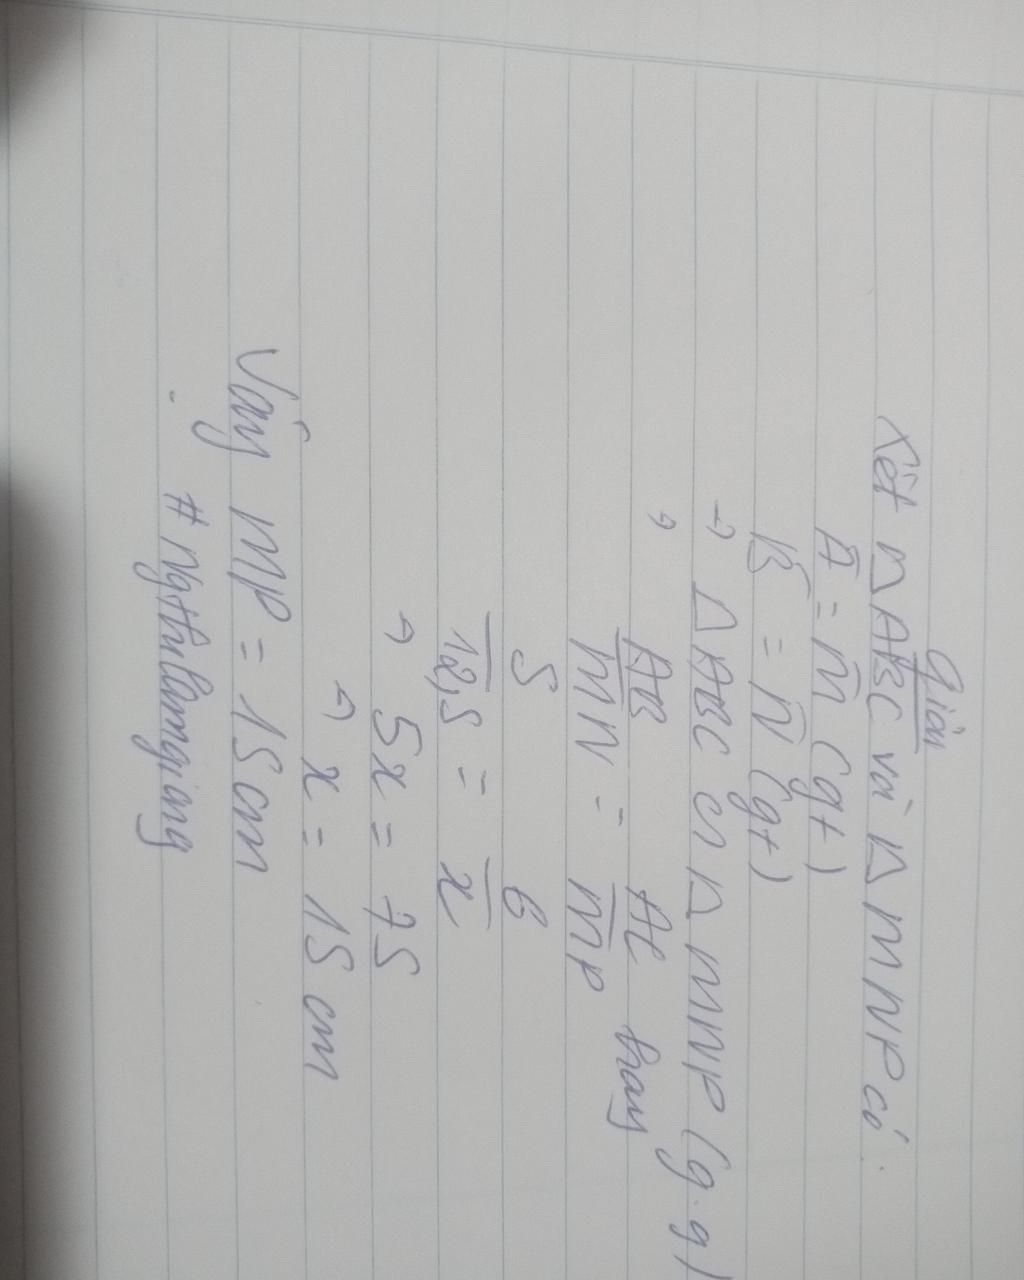 Giải
Xét ΔABC và ΔMNP có:
Â = M̂ (gt)
B̂ = N̂ (gt)
→ ΔABC ∽ ΔMNP (g.g)
→ AB/MN = AC/MP hay
5/12,5 = 6/x
→ 5x = 75
→ x = 15 cm
Vậy MP = 15 cm
# Ngthilamgiang